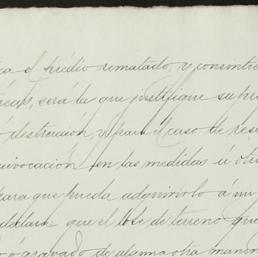 ca el prédio rematado, y consenti
será la que justifique su pro
destrucción, y para el caso de res
quivocación en las medidas ú otr
para que pueda adquirirlo á mi
declara: que el lote de terreno que
ó gravado de alguna otra maner